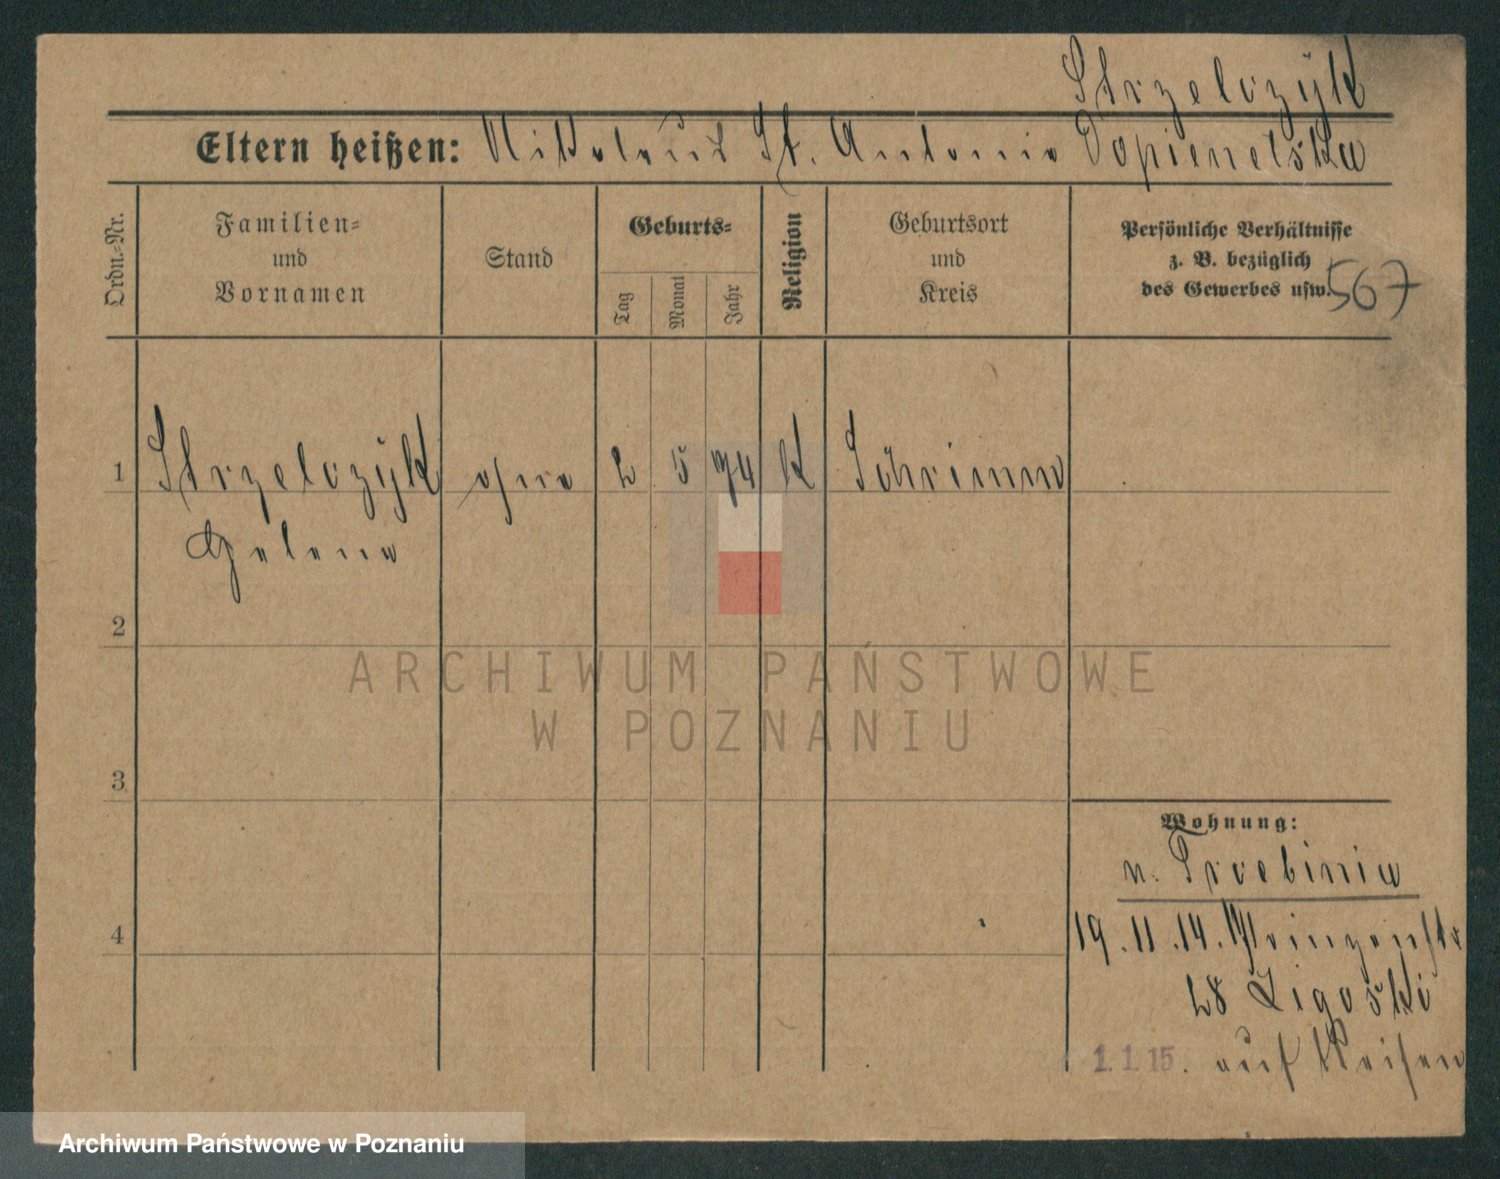 Strzelczyk
Eltern heißen: Nikolaus St. Antonie Dopieralska
Ordn.-Nr.
Familien-
und
Vornamen
Stand
Geburts-
Tag
Monat
Jahr
Religion
Geburtsort
und
Kreis
Persönliche Verhältnisse
z. B. bezüglich
des Gewerbes usw.
567
1 Strzelczyk ohne 2 5 74 K Schrimm
Helene
2
ARCHIWUM PAŃSTWOWE
W POZNANIU
3
Wohnung:
n.
4
19.11.14.
28
1.1.15. auf Reisen
Archiwum Państwowe w Poznaniu